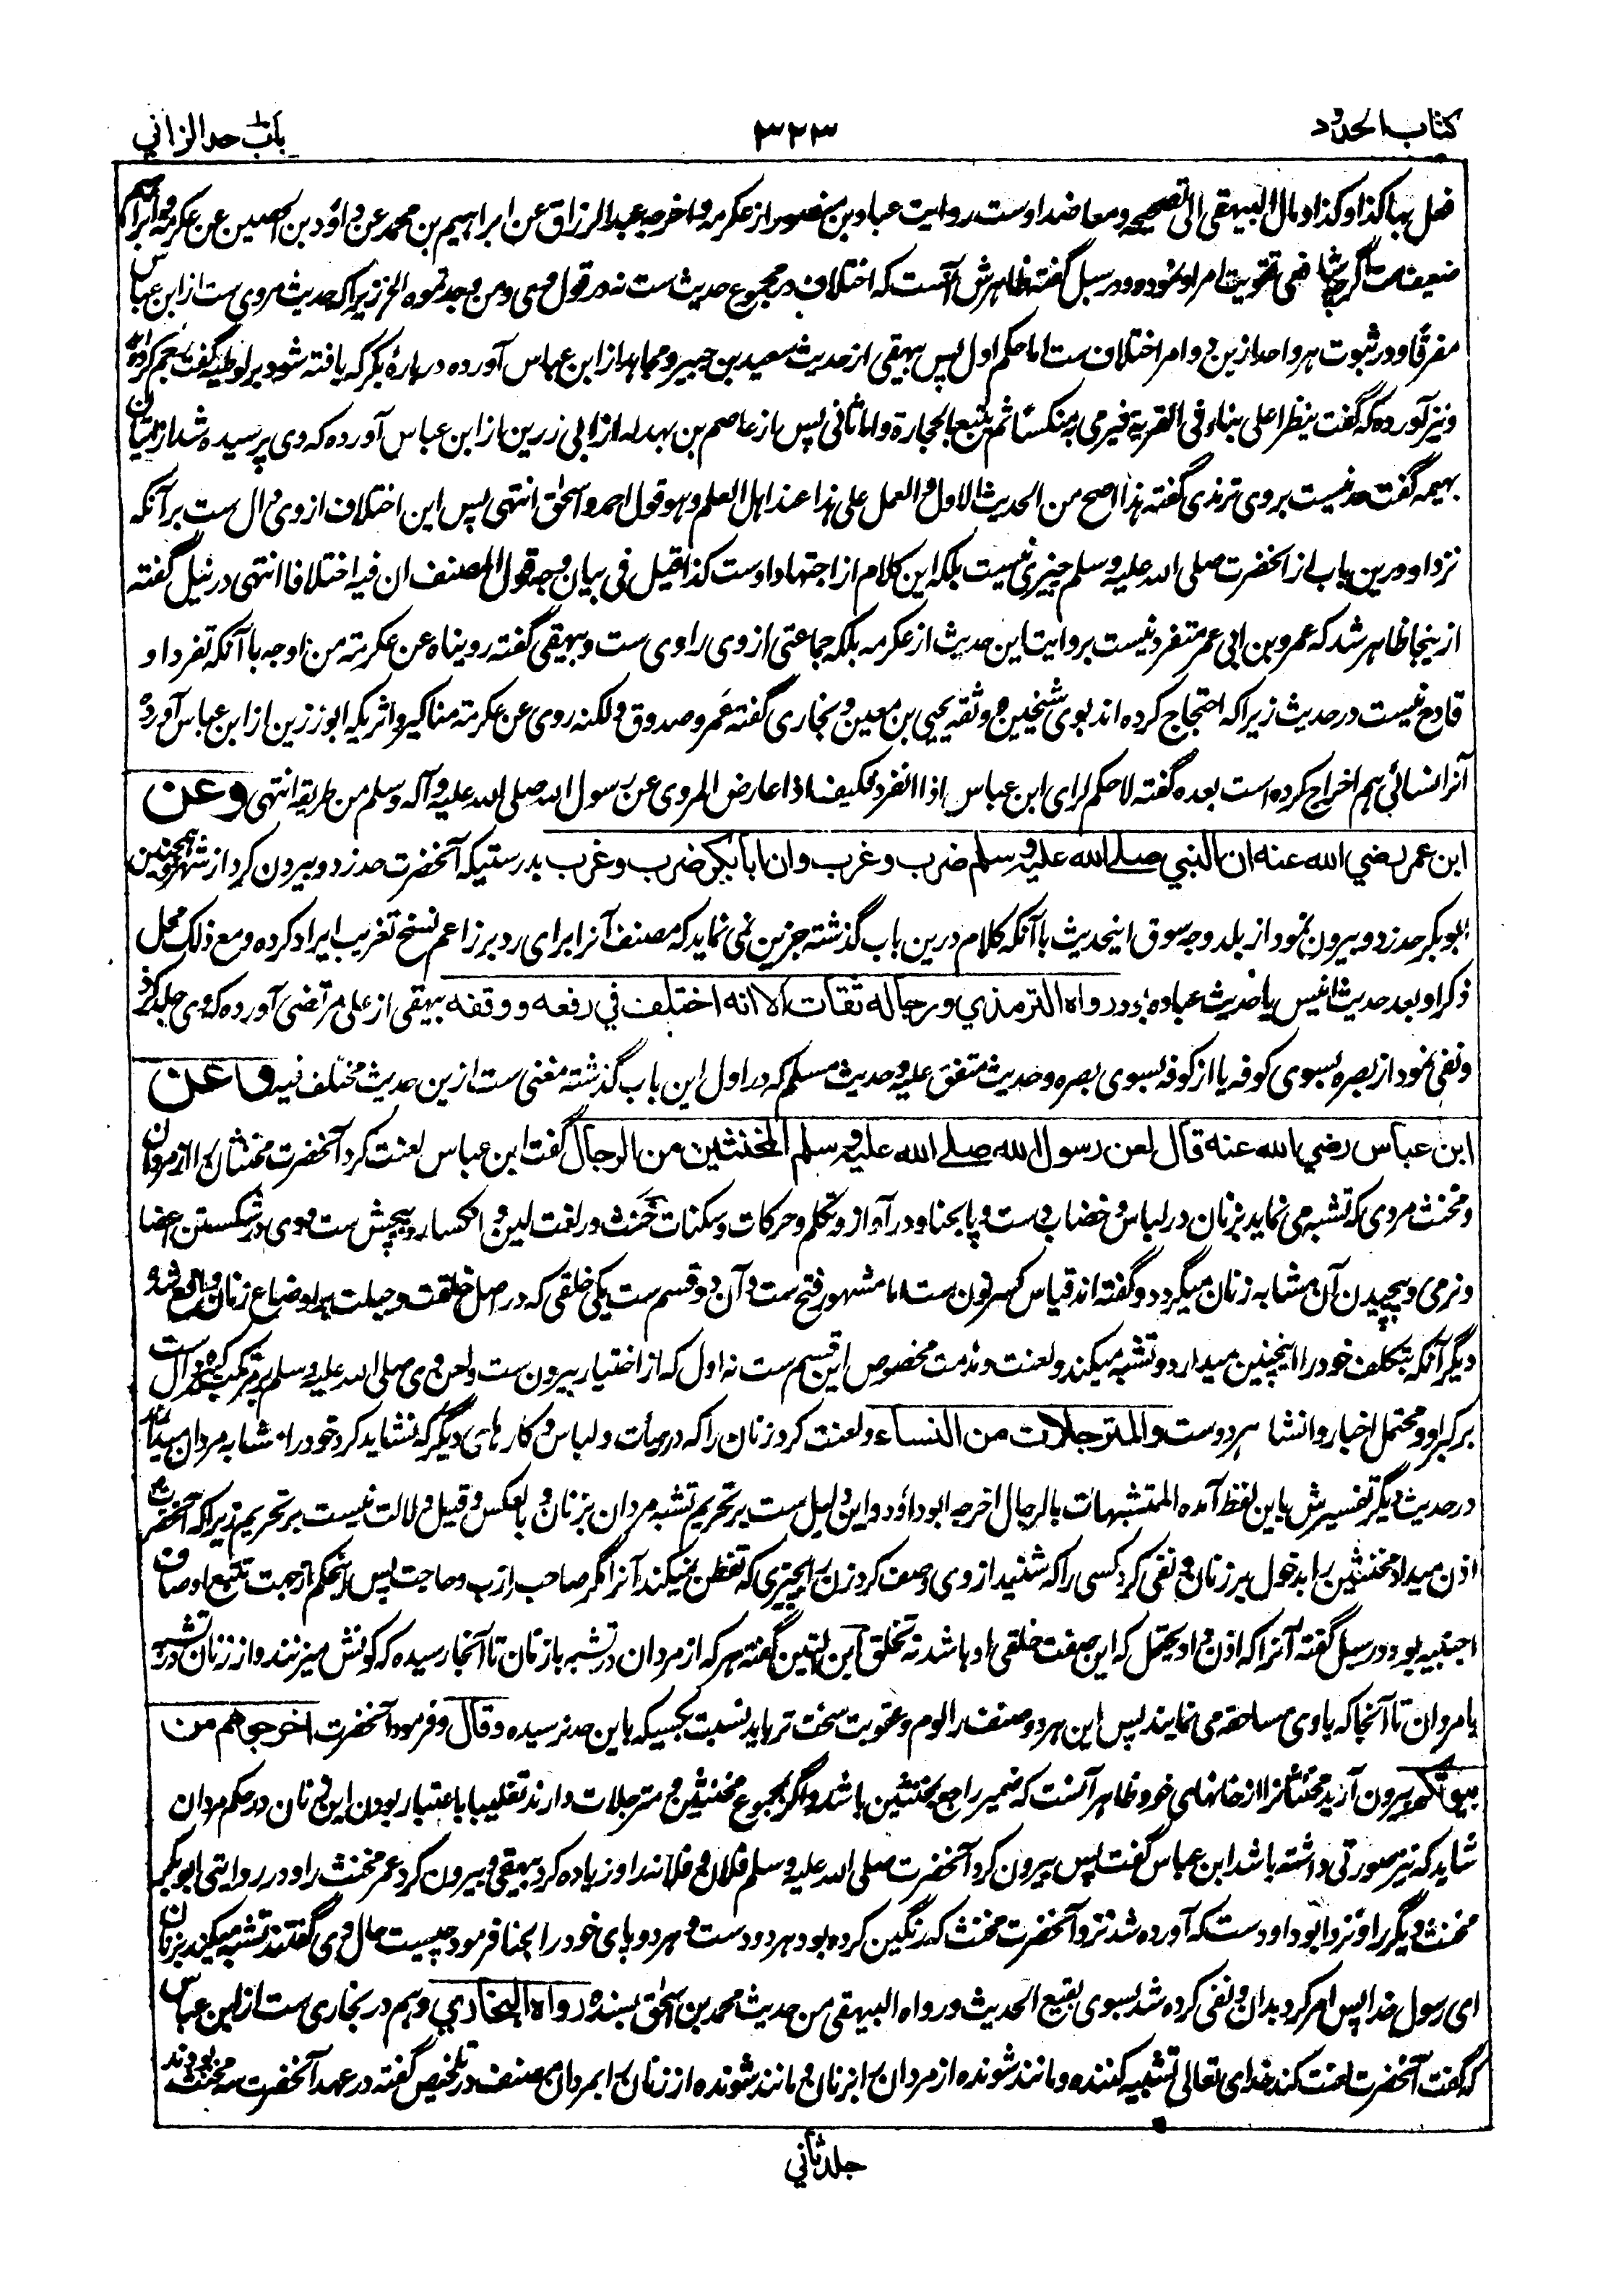 کتاب الحدود
۳۲۳
باب حد الزاني
فعل بها کذا و کذا و مال البیهقی الی تصحیحه و معاضد اوست روایت عباد بن منصور از عکرمه و اخرجه عبد الرزاق عن ابراهیم بن محمد عن داؤد بن الحصین عن عکرمه و ابراهیم
ضعیف ست اگرچه شافعی تقویت امر او نموده و در سبل گفته ظاهرش آنست که اختلاف در مجموع حدیث ست نه در قول وی و من وجدتموه الخ زیراکه حدیث مروی ست از ابن عباس
مفرقا و در ثبوت هر واحد ازین دو امر اختلاف ست اما حکم اول پس بیهقی از حدیث سعید بن جبیر و مجاهد از ابن عباس آورده در بارۀ بکر که یافته شود بر لوطیه گفت رجم کرده آید
و نیز آورده که گفت ینظر اعلی بناء فی القریة فیرمی به منکسا ثم یتبع بالحجارة و اما ثانی پس از عاصم بن بهدله از ابی رزین از ابن عباس آورده که وی پرسیده شد از اتیان
بهیمه گفت حد نیست بر وی ترمذی گفته هذا اصح من الحدیث الاول و العمل علی هذا عند اهل العلم و هو قول احمد و اسحق انتهی پس این اختلاف از وی دال ست بر آنکه
نزد او درین باب از آنحضرت صلی الله علیه و سلم چیزی نیست بلکه این کلام از اجتهاد اوست کذا قیل فی بیان وجه قول المصنف ان فیه اختلافا انتهی در نیل گفته
ازینجا ظاهر شد که عمرو بن ابی عمر متفرد نیست بروایت این حدیث از عکرمه بلکه جماعتی از وی راوی ست و بیهقی گفته رویناه عن عکرمة من اوجه با آنکه تفرد او
قادح نیست در حدیث زیراکه احتجاج کرده اند بوی شیخین و وثقه یحیی بن معین و بخاری گفته عمرو صدوق و لکنه روی عن عکرمة مناکیر و اثریکه ابو رزین از ابن عباس آورده
آنرا نسائی هم اخراج کرده است بعده گفته لا حکم لرای ابن عباس اذا انفرد فکیف اذا عارض المروی عن رسول الله صلی الله علیه و آله و سلم من طریقه انتهی وعن
ابن عمر رضي الله عنه ان النبي صلے الله عليه وسلم ضرب وغرب وان ابا بكر ضرب وغرب بدرستیکه آنحضرت حد زد و بیرون کرد از شهر و همچنین
ابو بکر حد زد و بیرون نمود از بلد و وجه سوق اینحدیث با آنکه کلام درین باب گذشته جزین نمی نماید که مصنف آنرا برای رد بر زاعم نسخ تغریب ایراد کرده و مع ذلک محل
ذکر او بعد حدیث انیس یا حدیث عباده بود رواه الترمذي ورجاله ثقات الا انه اختلف في رفعه ووقفه بیهقی از علی مرتضی آورده که وی جلد کرد
و نفی نمود از بصره بسوی کوفه یا از کوفه بسوی بصره و حدیث متفق علیه و حدیث مسلم که در اول این باب گذشته مغنی ست ازین حدیث مختلف فیه وعن
ابن عباس رضي الله عنه قال لعن رسول الله صلے الله عليه وسلم المخنثين من الرجال گفت ابن عباس لعنت کرد آنحضرت مخنثان را از مردان
و مخنث مردی که تشبه می نماید بزنان در لباس و خضاب دست و پا بحنا و در آواز و تکلم و حرکات و سکنات و خنث در لغت لین و انکسار و پیچش ست و وی در شکستن اعضا
و نرمی و پیچیدن آن مشابه زنان میگردد و گفته اند قیاس کسر نون ست اما مشهور فتح ست و آن دو قسم ست یکی خلقی که در اصل خلقت و جبلت بر اوضاع زنان واقع شده
دیگر آنکه بتکلف خود را اینچنین میدارد و تشبه میکند و لعنت و مذمت مخصوص این قسم ست نه اول که از اختیار بیرون ست و لعن وی صلی الله علیه و سلم بر مرتکب گناه دال ست
بر کبر او و محتمل اخبار و انشا هر دوست والمترجلات من النساء و لعنت کرد زنان را که در هیأت و لباس و کارهای دیگر که نشاید کرد خود را مشابه مردان میسازند
در حدیث دیگر تفسیرش باین لفظ آمده المتشبهات بالرجال اخرجه ابو داؤد و این دلیل ست بر تحریم تشبه مردان بزنان و بالعکس و قیل دلالت نیست بر تحریم زیراکه آنحضرت
اذن میداد مخنثین را بدخول بر زنان و نفی کرد کسی را که شنید از وی وصف کردن زن را بچیزی که تفطن نمیکند آنرا مگر صاحب ارب و حاجت پس این حکم از جهت تتبع اوصاف
اجنبیه بود و در سبل گفته آنرا که اذن داد یحتمل که این صفت خلقی او باشد نه تخلق ابن التین گفته هر که از مردان در تشبه بازنان تا آنجا رسیده که کونش میزنند و از زنان در تشبه
با مردان تا آنجا که با وی مساحقه می نمایند پس این هر دو صنف را لوم و عقوبت سخت تر باید نسبت بکسیکه باین حد نرسیده وقال و فرمود آنحضرت اخرجوهم من
بيوتكم بیرون آرید مخنثان را از خانهای خود ظاهر آنست که ضمیر راجع بمخنثین باشد و اگر بمجموع مخنثین و مترجلات دارند تغلیبا باعتبار بودن این زنان در حکم مردان
شاید که نیز صورتی داشته باشد ابن عباس گفت پس بیرون کرد آنحضرت صلی الله علیه و سلم فلان و فلانه را و زیاده کرد بیهقی و بیرون کرد عمر مخنث را و در روایتی ابو بکر
مخنث دیگر را و نزد ابو داود ست که آورده شد نزد آنحضرت مخنث که رنگین کرده بود هر دو دست و هر دو پای خود را بحنا فرمود چیست حال وی گفتند تشبه میکند بزنان
ای رسول خدا پس امر کرد بدان و نفی کرده شد بسوی بقیع الحدیث و رواه البیهقی من حدیث محمد بن اسحق بسنده رواه البخاري و هم در بخاری ست از ابن عباس
که گفت آنحضرت لعنت کند خدای تعالی تشبیه کننده و مانند شونده از مردان را بزنان و مانند شونده از زنان را بمردان مصنف در تلخیص گفته در عهد آنحضرت سه مخنث بودند
جلد ثاني